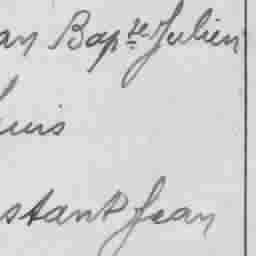 an Bapte Julien
uis
stant Jean